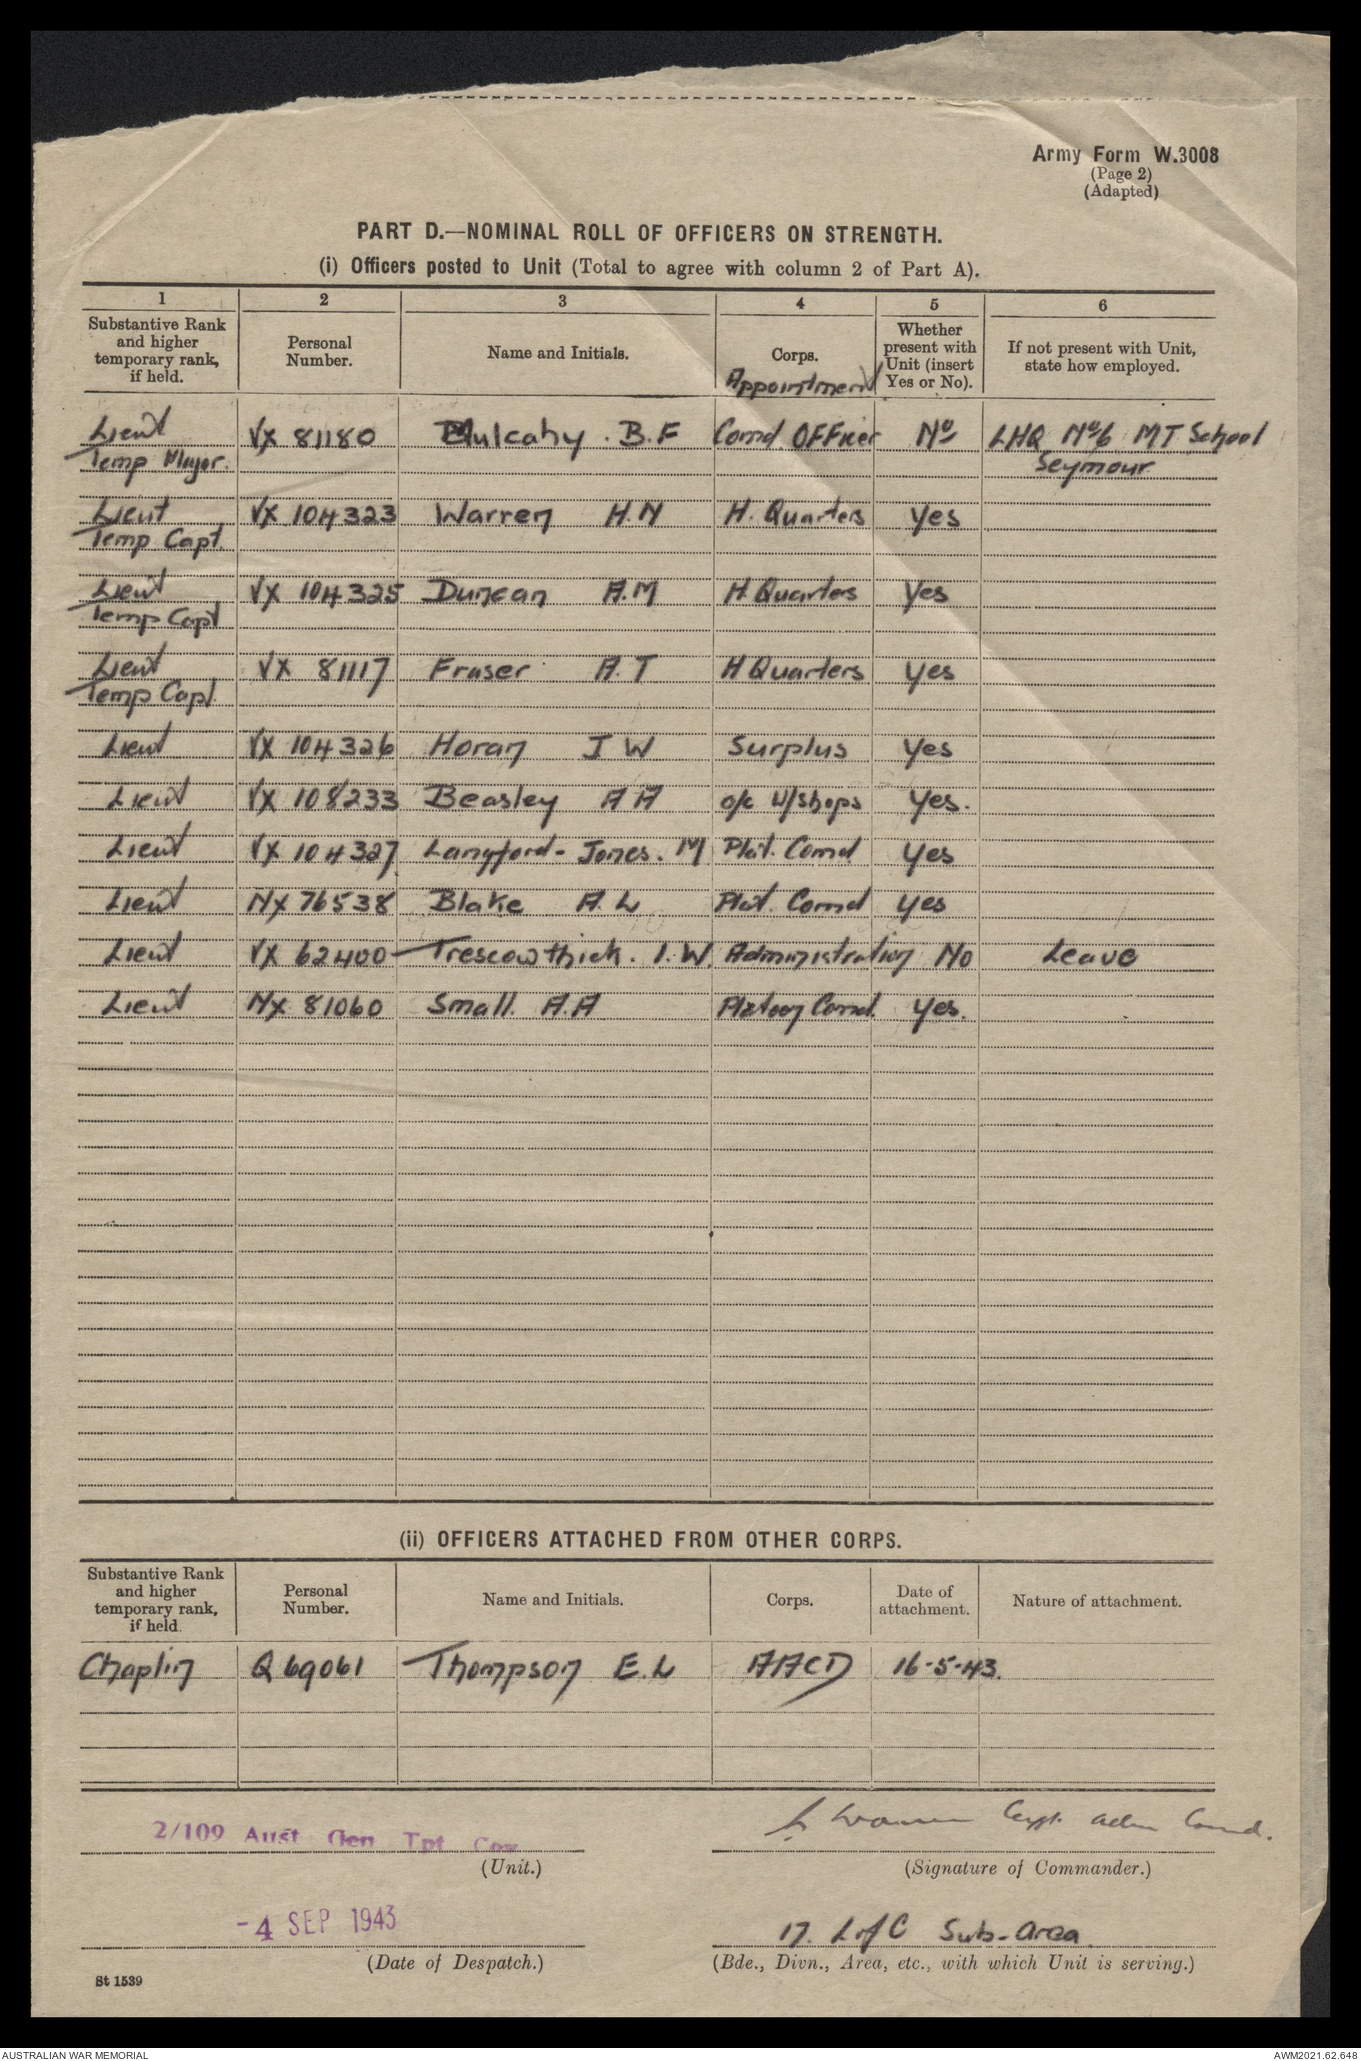 Army Form W.3008
(Page 2)
(Adapted)
PART D.—NOMINAL ROLL OF OFFICERS ON STRENGTH.
(i) Officers posted to Unit (Total to agree with column 2 of Part A).
1 2 3 4 5 6
Substantive Rank and higher temporary rank, if held. Personal Number. Name and Initials. Corps. Appointment Whether present with Unit (insert Yes or No). If not present with Unit, state how employed.
Lieut VX 81180 Mulcahy . B.F Comd. OFFicer No LHQ No 6 MT School
Temp Major. Seymour
Lieut VX 104323 Warren H.N H. Quarters Yes
Temp Capt.
Lieut VX 104325 Duncan A.M H Quarters Yes
Temp Capt
Lieut VX 81117 Fraser A.T H Quarters Yes
Temp Capt.
Lieut VX 104326 Horan J W Surplus Yes
Lieut VX 108233 Beasley A A o/c W/shops Yes.
Lieut VX 104327 Langford- Jones. M Plat. Comd Yes
Lieut NX 76538 Blake A.L Plat. Comd Yes
Lieut VX 62400 Trescowthick. I.W. Administration No Leave
Lieut NX 81060 Small. A.A Platoon Comd. Yes.
(ii) OFFICERS ATTACHED FROM OTHER CORPS.
Substantive Rank and higher temporary rank, if held. Personal Number. Name and Initials. Corps. Date of attachment. Nature of attachment.
Chaplin Q 69061 Thompson E.L AACD 16-5-43.
2/109 Aust Gen Tpt Coy Warren Capt. Adm Comd.
(Unit.) (Signature of Commander.)
-4 SEP 1943 17. L of C Sub-Area
(Date of Despatch.) (Bde., Divn., Area, etc., with which Unit is serving.)
St 1539
AUSTRALIAN WAR MEMORIAL AWM2021.62.648